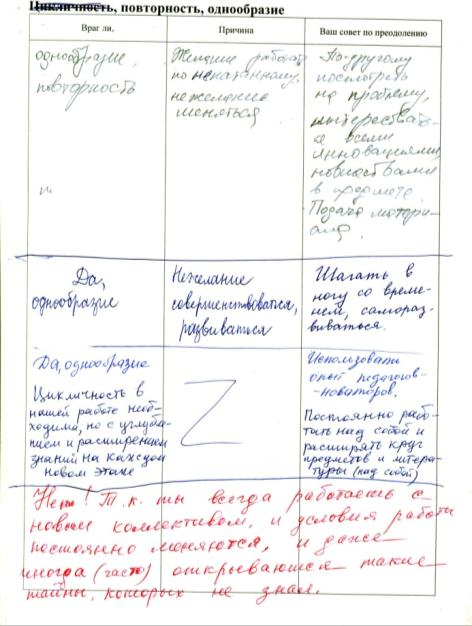 Цикличность, повторность, однообразие
Враг ли,
Причина
Ваш совет по преодолению
однообразие,
повторность
Желание работать
по ненатанному,
нежелание
меняться
По-другому
посмотреть
на проблему,
интересовать-
ся всеми
инновациями,
новшествами
в предмете.
Подача матери-
ала.
Да,
однообразие
Нежелание
совершенствоваться,
развиваться
Шагать в
ногу со време-
нем, самораз-
виваться.
Да, однообразие
Цикличность в
нашей работе необ-
ходима, но с углубле-
нием и расширением
знаний на каждом
новом этапе
Z
Использовать
опыт педагогов-
новаторов.
Постоянно рабо-
тать над собой и
расширять круг
предметов и литера-
туры (над собой)
Нет! Т.к. ты всегда работаешь с
новым коллективом, и условия работы
постоянно меняются, и даже
иногда (часто) открываются такие
тайны, которых не знал.